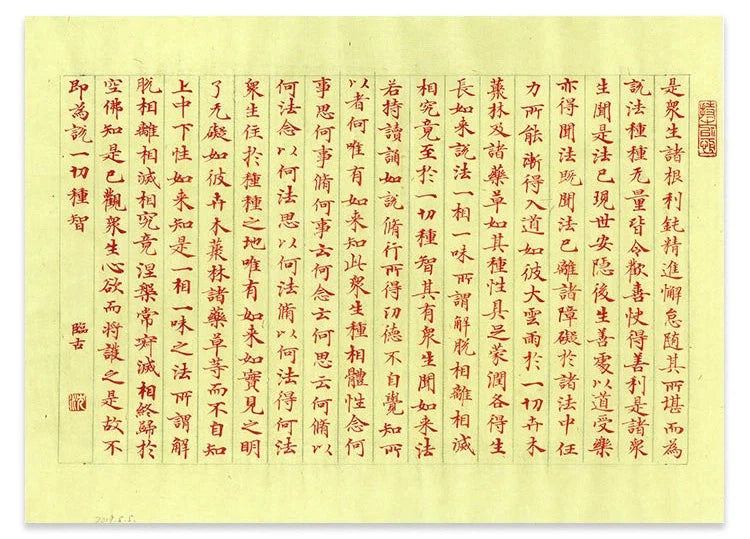 是衆生諸根利鈍精進懈怠隨其所堪而為
說法種種无量皆令歡喜快得善利是諸衆
生聞是法已現世安隱後生善處以道受樂
亦得聞法既聞法已離諸障礙於諸法中任
力所能漸得入道如彼大雲雨於一切卉木
藂林及諸藥草如其種性具足蒙潤各得生
長如来說法一相一味所謂解脫相離相滅
相究竟至於一切種智其有衆生聞如来法
若持讀誦如說脩行所得功德不自覺知所
以者何唯有如来知此衆生種相體性念何
事思何事脩何事云何念云何思云何脩以
何法念以何法思以何法脩以何法得何法
衆生住於種種之地唯有如来如實見之明
了无礙如彼卉木藂林諸藥草等而不自知
上中下性如来知是一相一味之法所謂解
脫相離相滅相究竟涅槃常寂滅相終歸於
空佛知是已觀衆生心欲而將護之是故不
即為說一切種智
臨古
2019.5.5.